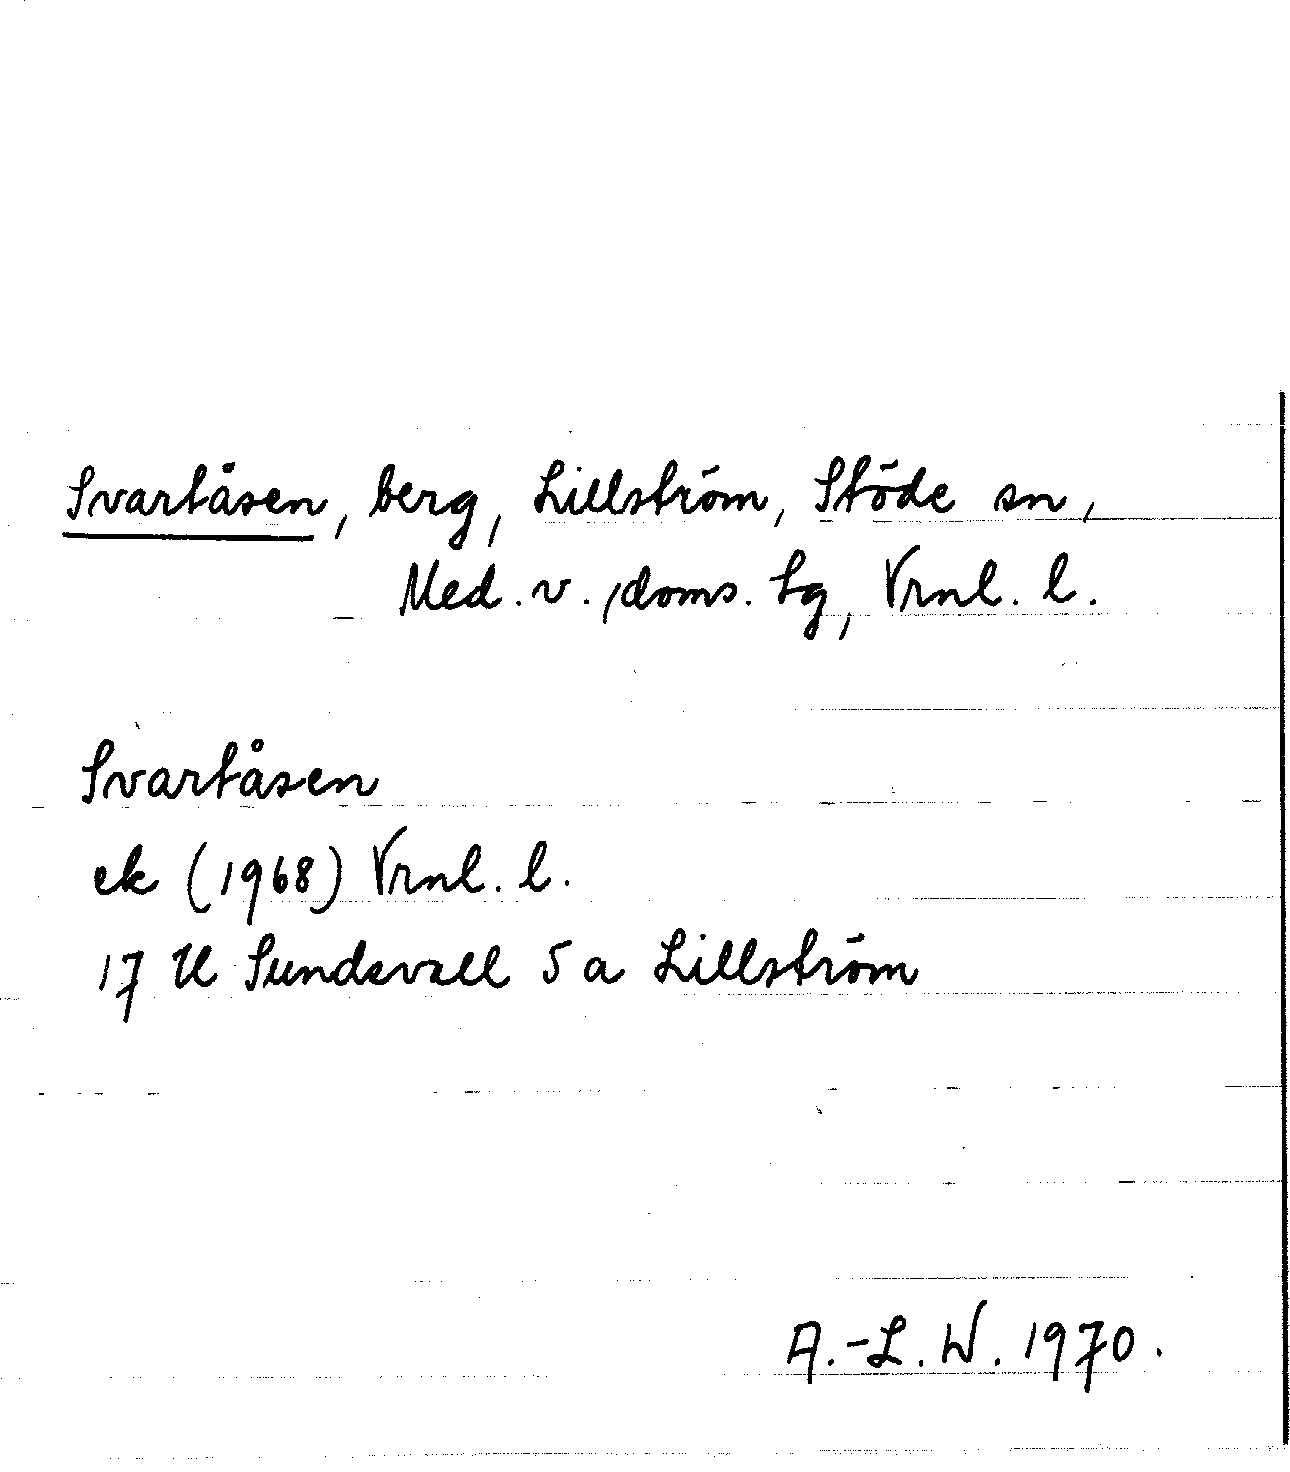 Svartåsen, berg, Lillström, Stöde sn,
Med. v., doms. lg, Vrnl. l.
Svartåsen
ek (1968) Vrnl. l.
17 H Sundsvall 5 a Lillström
A.-L. W. 1970.